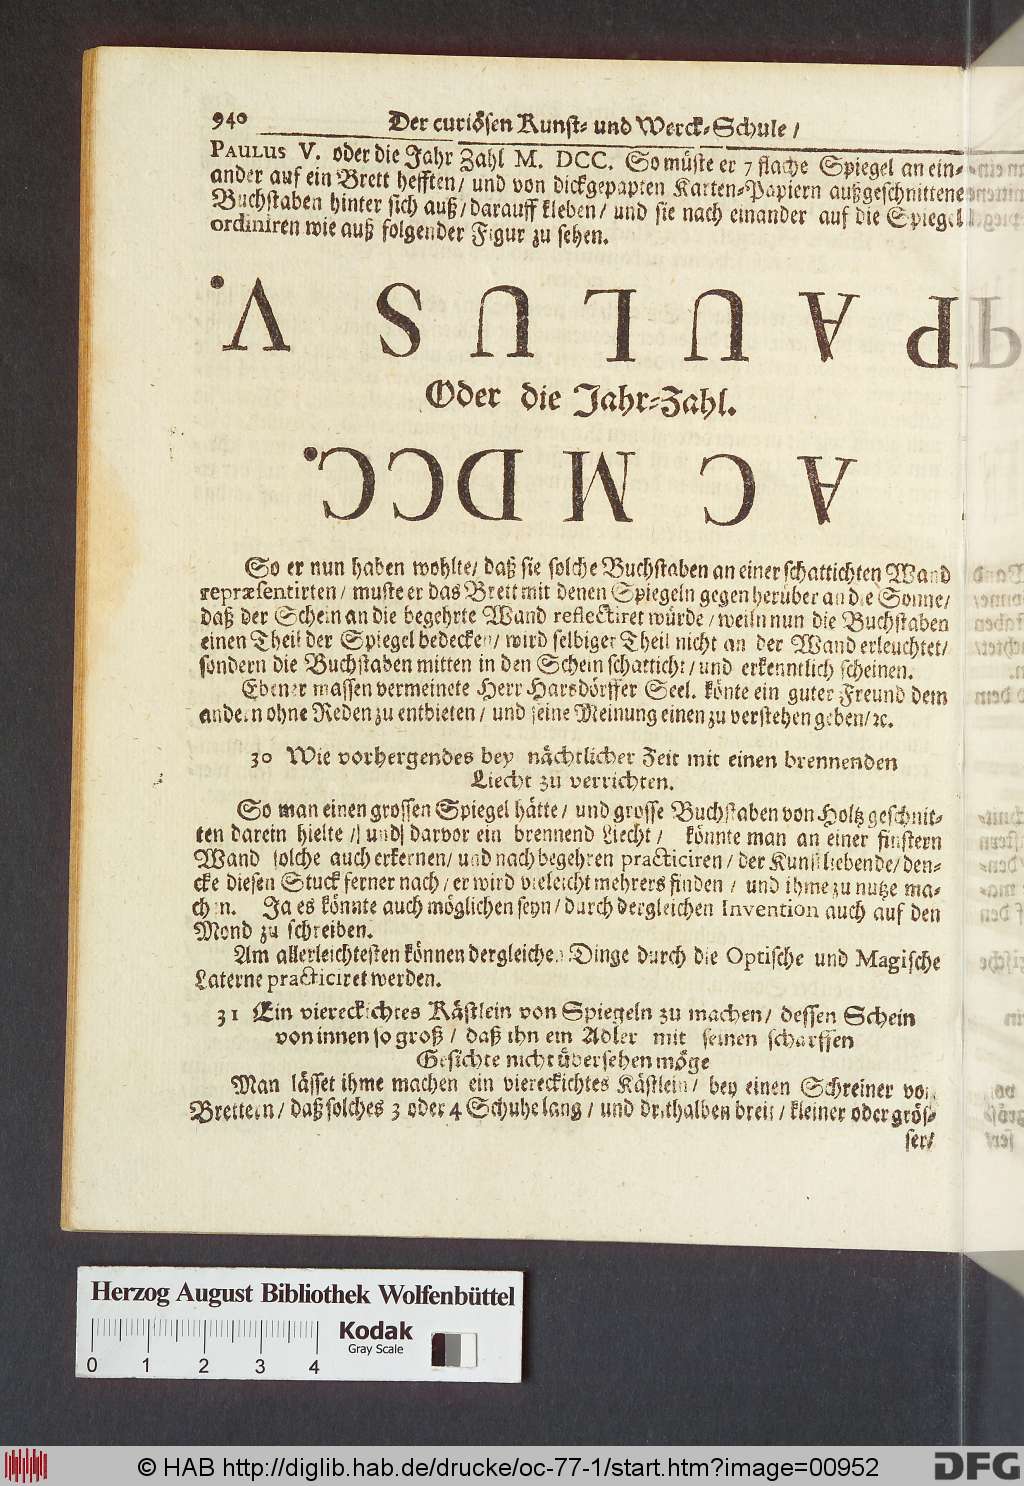 940 Der curiösen Kunst- und Werck-Schule /
PAULUS V. oder die Jahr Zahl M. DCC. So müste er 7 flache Spiegel an ein-
ander auf ein Brett hefften / und von dickgepapten Karten-Papiern außgeschnittene
Buchstaben hinter sich auß / darauff kleben / und sie nach einander auf die Spiegel
ordiniren wie auß folgender Figur zu sehen.
PAULUS V.
Oder die Jahr-Zahl.
AC MDCC.
So er nun haben wohlte / daß sie solche Buchstaben an einer schattichten Wand
repræsentirten / muste er das Brett mit denen Spiegeln gegen herüber an die Sonne /
daß der Schein an die begehrte Wand reflectiret würde / weiln nun die Buchstaben
einen Theil der Spiegel bedecken / wird selbiger Theil nicht an der Wand erleuchtet /
sondern die Buchstaben mitten in den Schein schatticht / und erkenntlich scheinen.
Ebener massen vermeinete Herr Harsdörffer Seel. könte ein guter Freund dem
andern ohne Reden zu entbieten / und seine Meinung einen zu verstehen geben / ꝛc.
30 Wie vorhergendes bey nächtlicher Zeit mit einen brennenden
Liecht zu verrichten.
So man einen grossen Spiegel hätte / und grosse Buchstaben von Holtz geschnit-
ten darein hielte / und darvor ein brennend Liecht / könnte man an einer finstern
Wand solche auch erkernen / und nach begehren practiciren / der Kunstliebende / den-
cke diesen Stuck ferner nach / er wird vieleicht mehrers finden / und ihme zu nutze ma-
chen. Ja es könnte auch möglichen seyn / durch dergleichen Invention auch auf den
Mond zu schreiben.
Am allerleichtesten können dergleichen Dinge durch die Optische und Magische
Laterne practiciret werden.
31 Ein viereckichtes Kästlein von Spiegeln zu machen / dessen Schein
von innen so groß / daß ihn ein Adler mit seinen scharffen
Gesichte nicht übersehen möge
Man lässet ihme machen ein viereckichtes Kästlein / bey einen Schreiner von
Brettern / daß solches 3 oder 4 Schuhe lang / und drithalben breit / kleiner oder grös-
ser /
Herzog August Bibliothek Wolfenbüttel
Kodak
Gray Scale
0 1 2 3 4
© HAB http://diglib.hab.de/drucke/oc-77-1/start.htm?image=00952
DFG